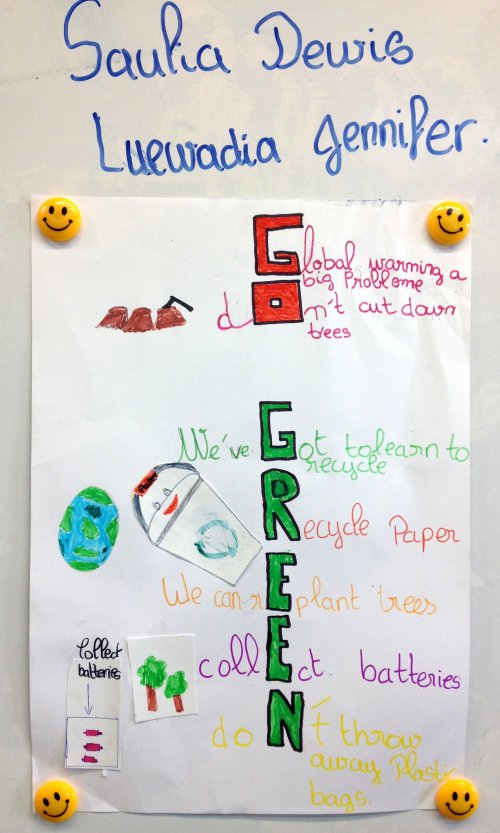 Saulia Dewis
Luewadia Jennifer.
Global warming a
big Probleme
dOn't cut down
trees
We've Got to learn to
recycle
Recycle Paper
We can rEplant trees
collEct batteries
doN't throw
away Plastic
bags.
Collect
batteries